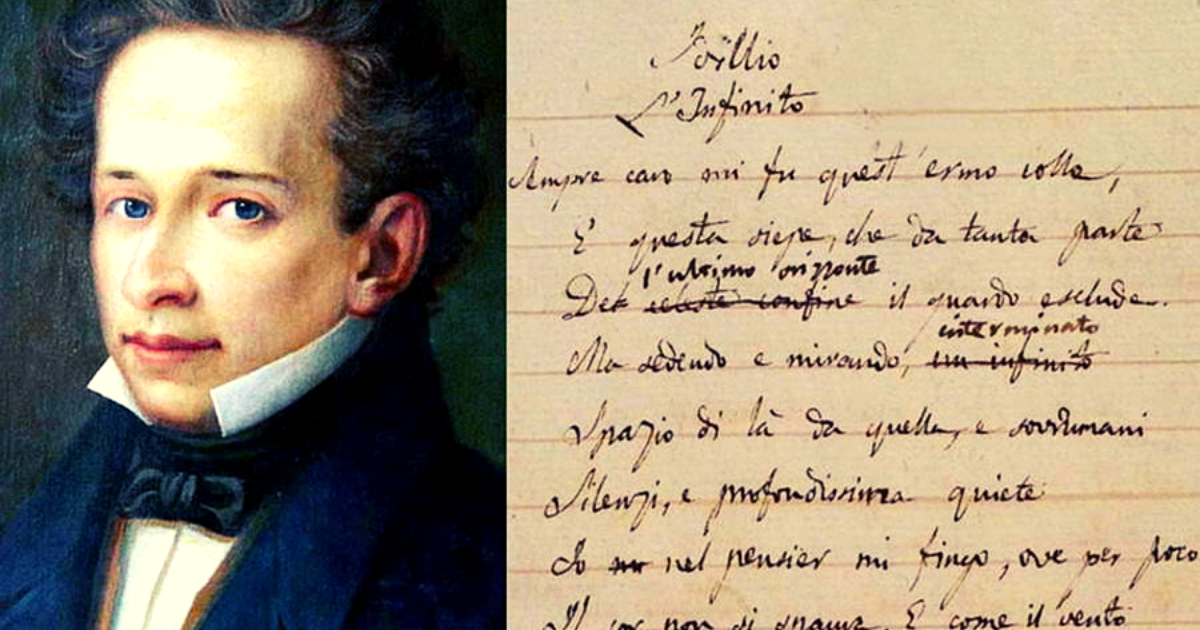 Idillio
L'Infinito
Sempre caro mi fu quest'ermo colle,
E questa siepe, che da tanta parte
l'ultimo orizzonte
Del celeste confine il guardo esclude.
interminato
Ma sedendo e mirando, un infinito
Spazio di là da quella, e sovrumani
Silenzj, e profondissima quiete
Io nel pensier mi fingo, ove per poco
Il cor non si spaura. E come il vento